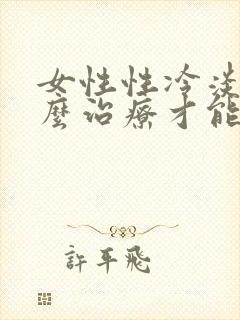 女性性冷淡
麼治療才能
許平飛